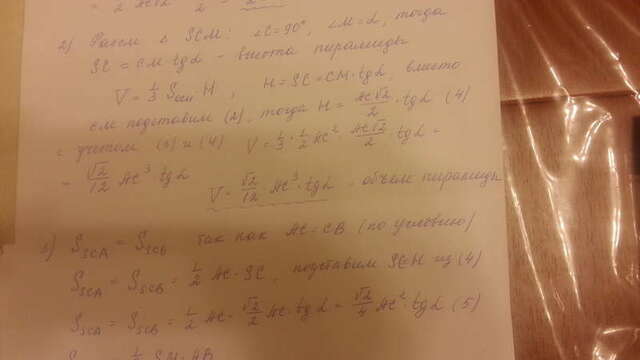 2) Рассм △ SCM: ∠C=90°, ∠M=α, тогда
SC = CM·tgα - высота пирамиды
V = 1/3 Sосн H, H=SC=CM·tgα, вместо
см подставим (2), тогда H = AC√2/2 · tgα (4)
с учетом (3) и (4) V = 1/3 · 1/2 AC² · AC√2/2 · tgα =
= √2/12 AC³·tgα
V = √2/12 AC³·tgα - объем пирамиды
3) S SCA = S SCB так как AC=CB (по условию)
S SCA = S SCB = 1/2 AC·SC, подставим из (4)
S SCA = S SCB = 1/2 AC · √2/2 AC·tgα = √2/4 AC²·tgα (5)
SM·AB